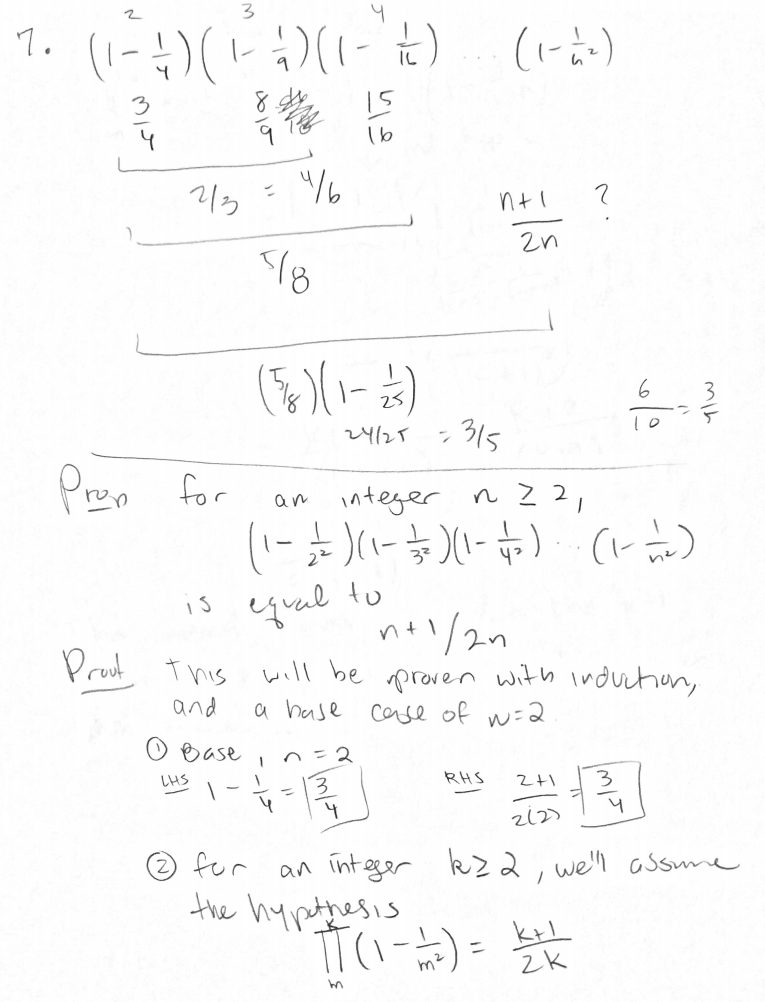 2 3 4
7. (1 - 1/4)(1 - 1/9)(1 - 1/16) ... (1 - 1/n²)
3/4 8/9 15/16
2/3 = 4/6
n+1/2n ?
5/8
(5/8)(1 - 1/25)
24/25 = 3/5
6/10 = 3/5
Prop for an integer n ≥ 2,
(1 - 1/2²)(1 - 1/3²)(1 - 1/4²) ... (1 - 1/n²)
is equal to
n+1/2n
Proof This will be proven with induction,
and a base case of n=2
① Base, n = 2
LHS 1 - 1/4 = 3/4 RHS 2+1/2(2) = 3/4
② for an integer k ≥ 2, we'll assume
the hypothesis
k
∏ (1 - 1/m²) = k+1/2k
m